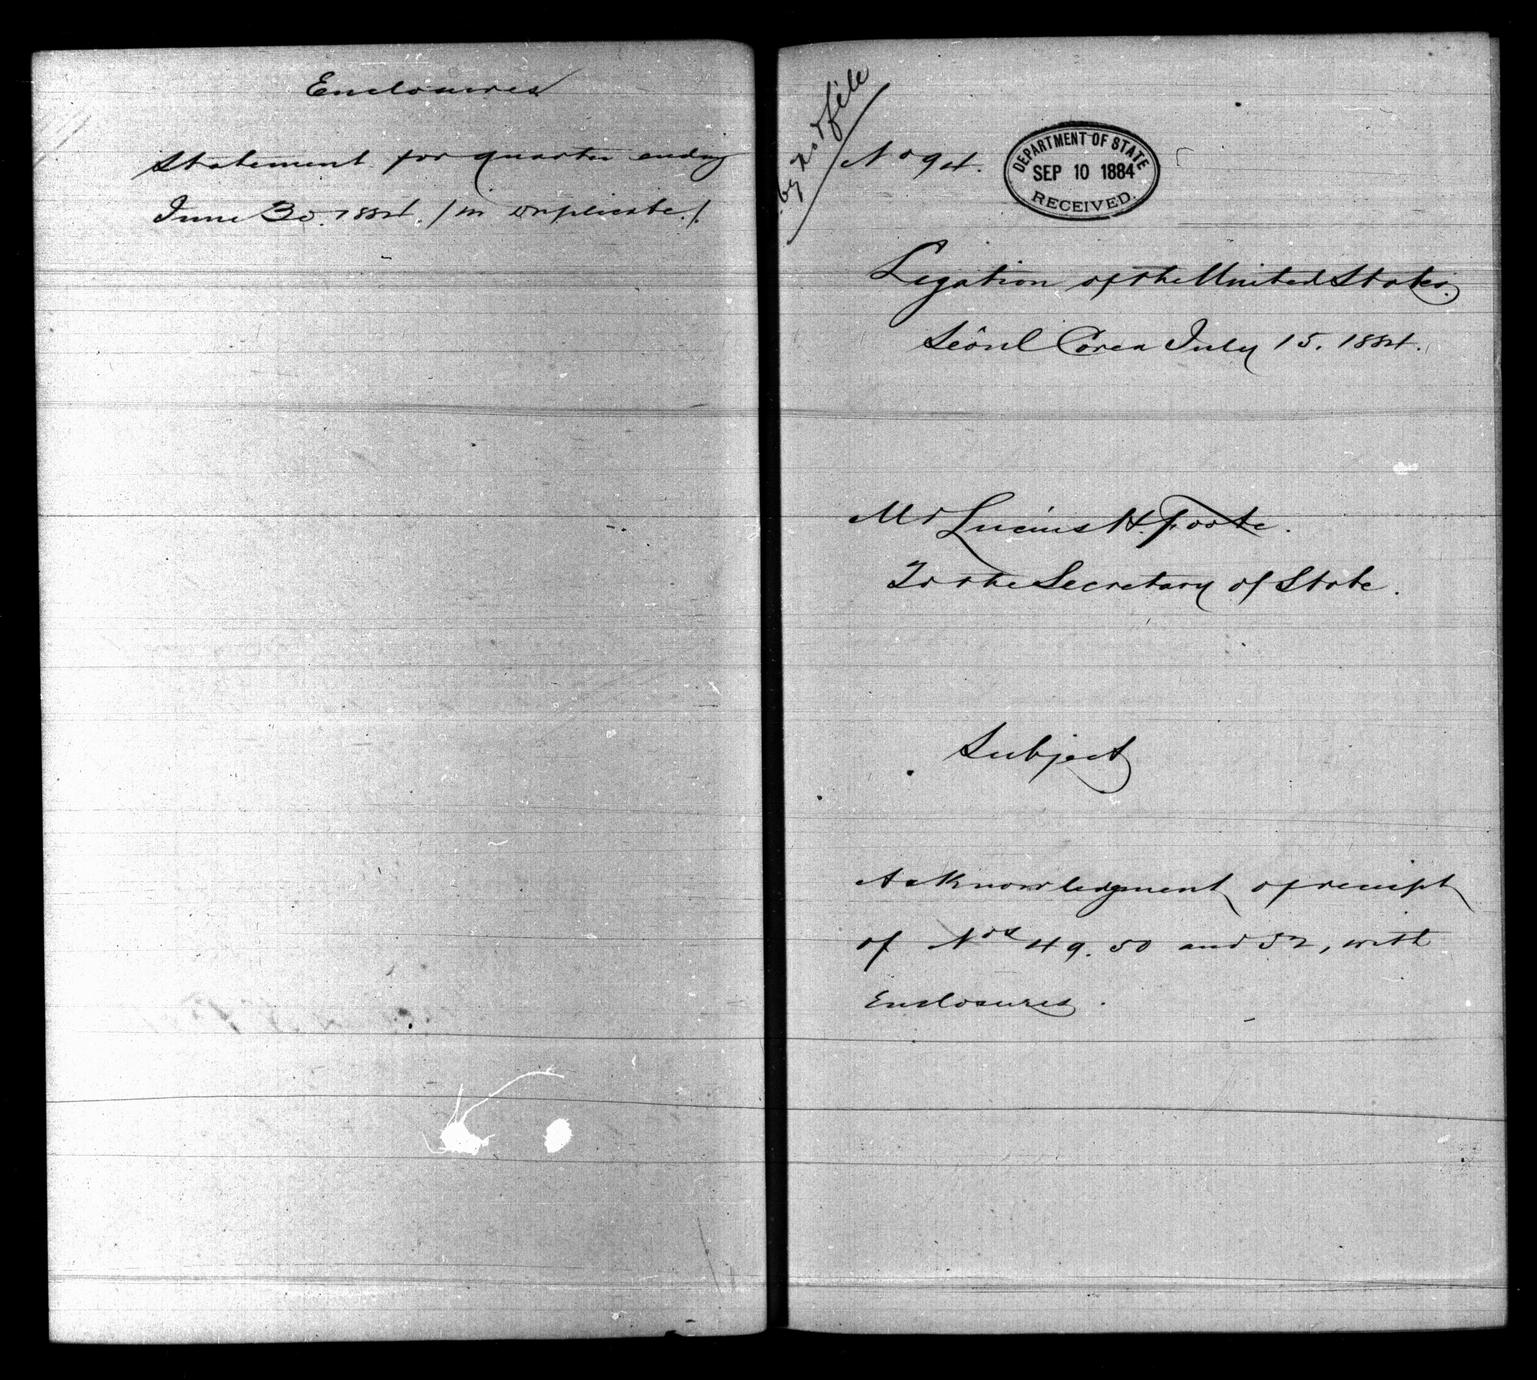 Enclosures
Statement for quarter ending
June 30. 1884. / in duplicate. /
file
No 94.
DEPARTMENT OF STATE
SEP 10 1884
RECEIVED.
Legation of the United States.
Seôul Corea July 15. 1884.
Mr Lucius H. Foote.
To the Secretary of State.
Subject
Acknowledgment of receipt
of Nos 49. 50 and 52, with
Enclosures.